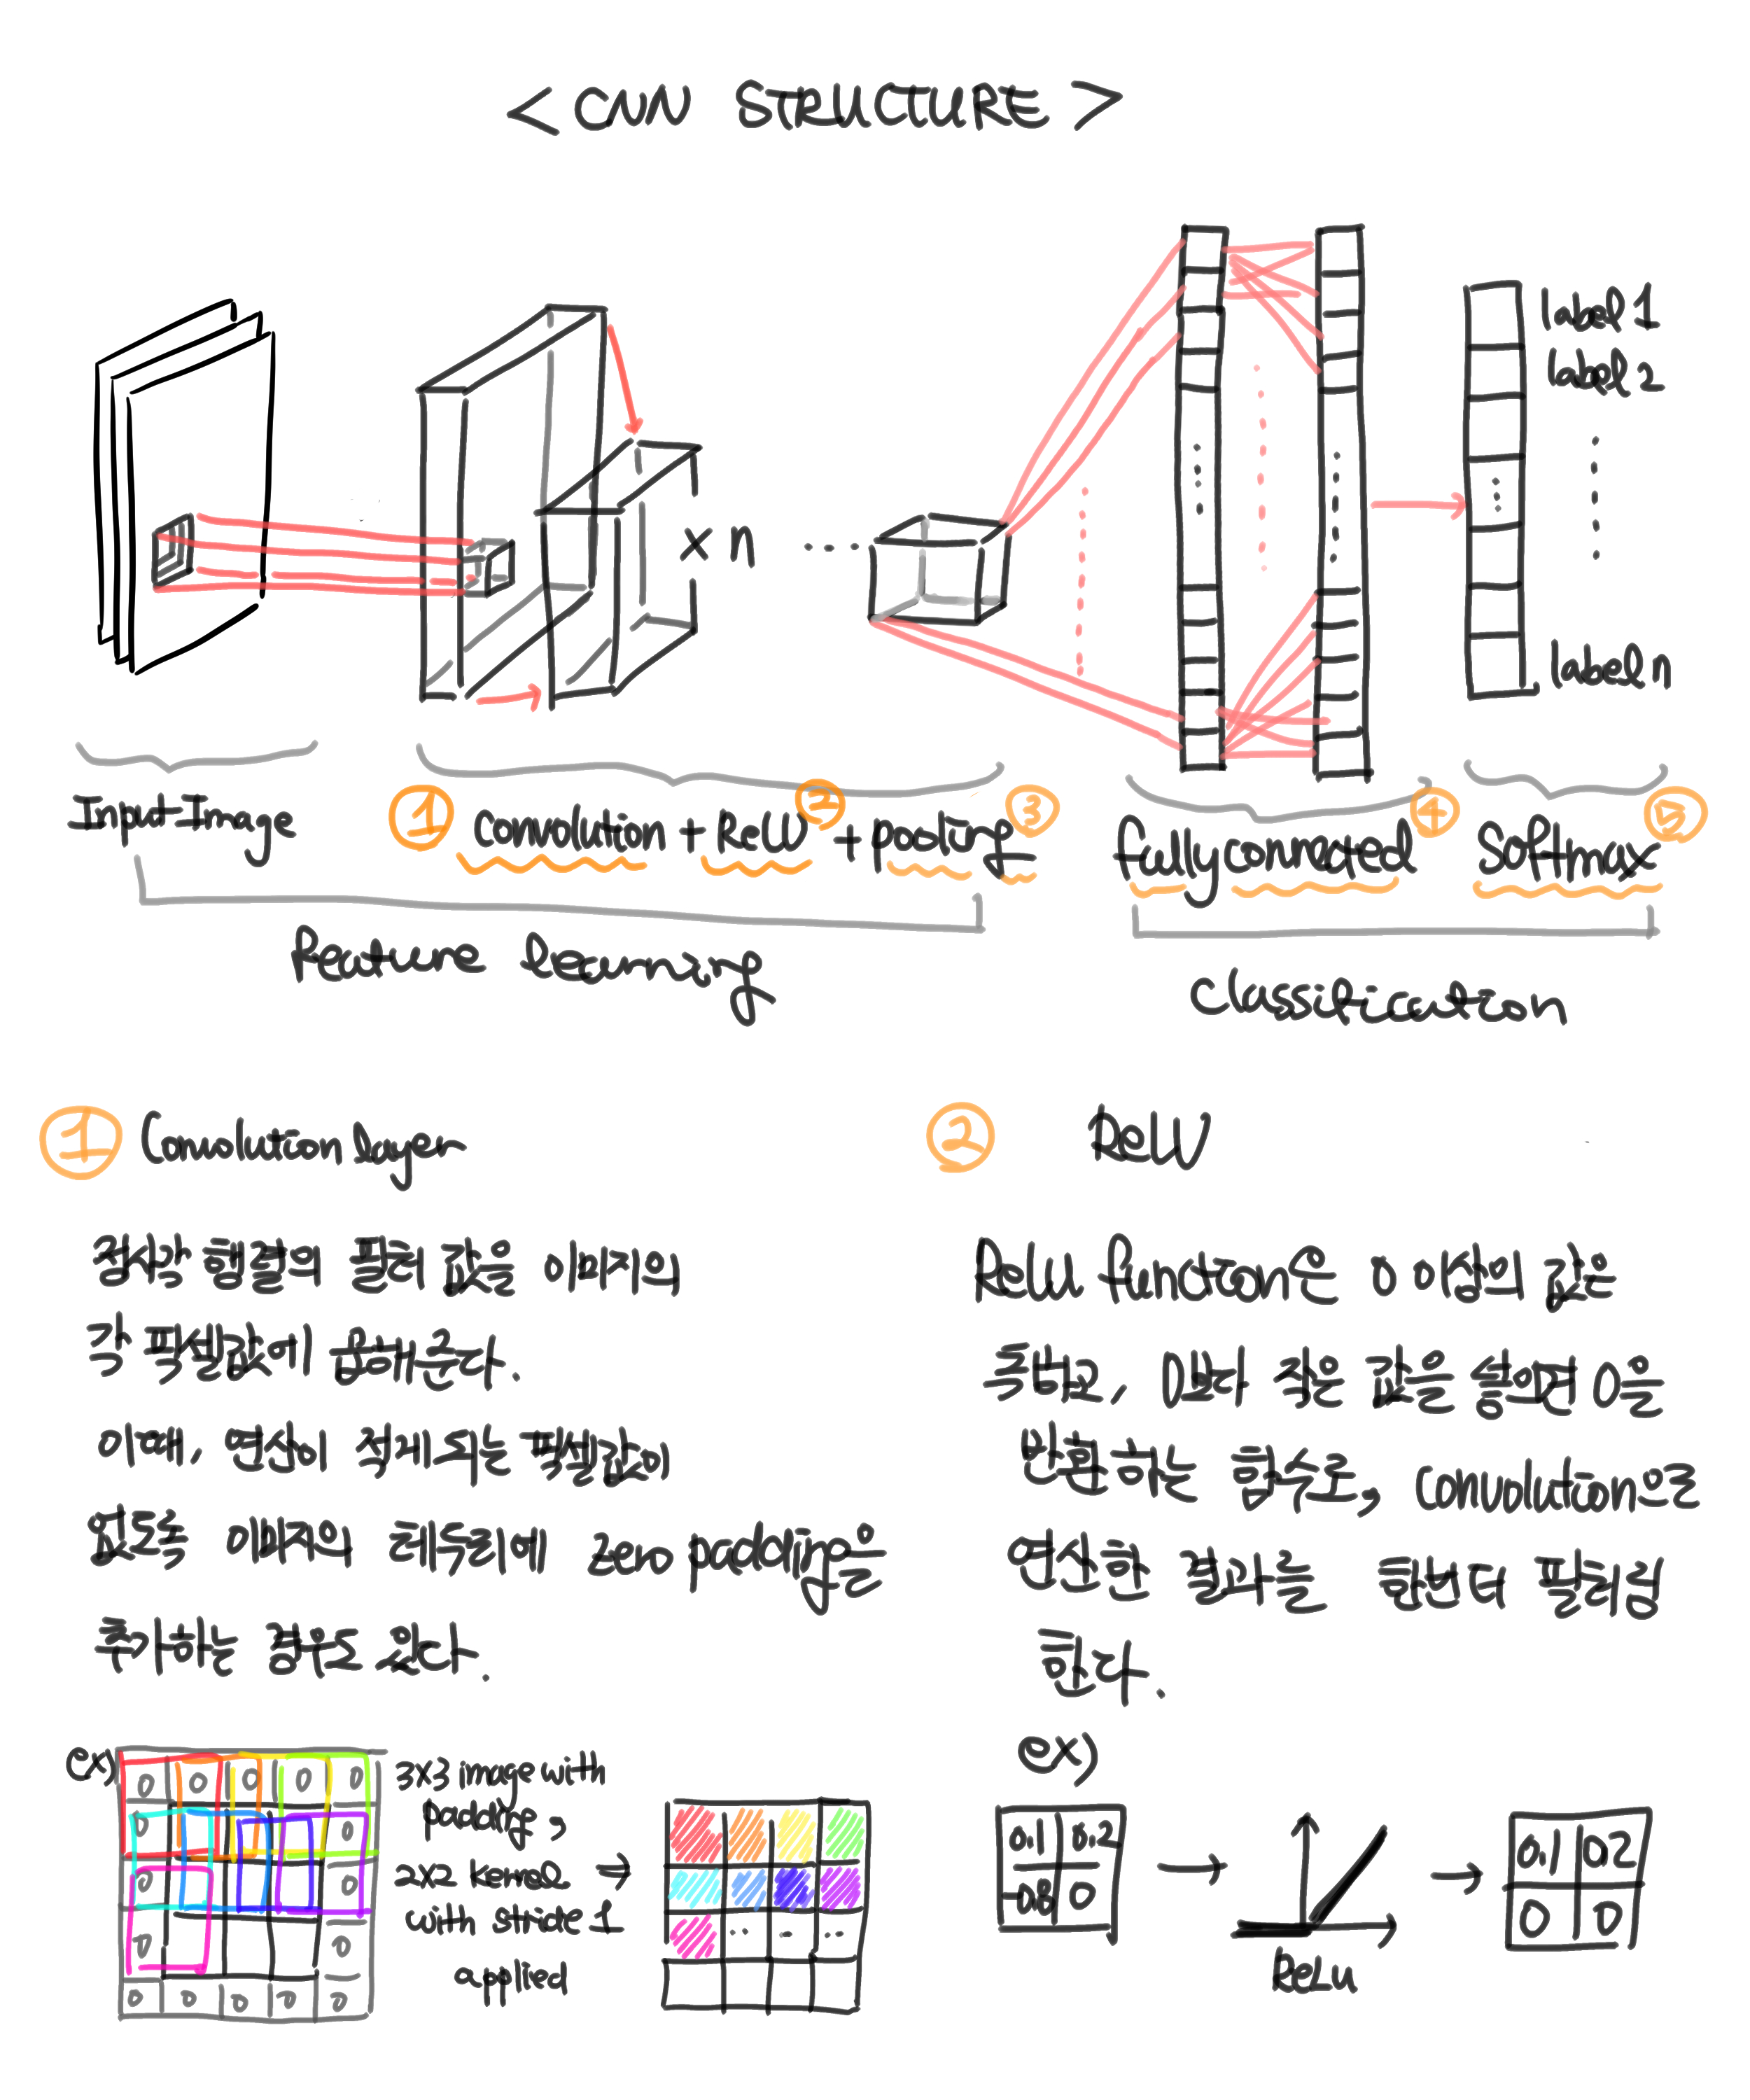 < CNN STRUCTURE >
label 1
label 2
x n
label n
Input Image
① Convolution + ReLU ② + pooling ③
fully connected ④
Softmax ⑤
Feature learning
Classification
① Convolution layer
정사각 행렬의 필터 값을 이미지의
각 픽셀값에 곱해준다.
이때, 연산이 적게 되는 픽셀값이
없도록 이미지의 테두리에 zero padding을
추가하는 경우도 있다.
ex)
0 0 0 0 0
0 0
0 0
0 0
0 0 0 0 0
3x3 image with
padding,
2x2 kernel
with stride 1
applied
② ReLU
Relu function은 0 이상의 값은
특하고, 0보다 작은 값을 넣으면 0을
반환하는 함수로, convolution으로
연산한 결과를 한번더 필터링
한다.
ex)
0.1 0.2
-0.8 0
ReLu
0.1 0.2
0 0